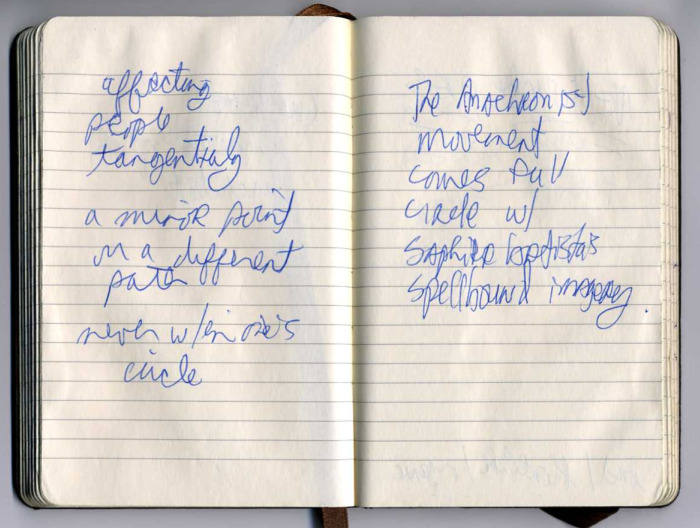 affecting
people
tangentialy
a minor point
in a different
path
never w/in one's
circle
The Anachronist
movement
comes full
circle w/
Spellbound imagery.